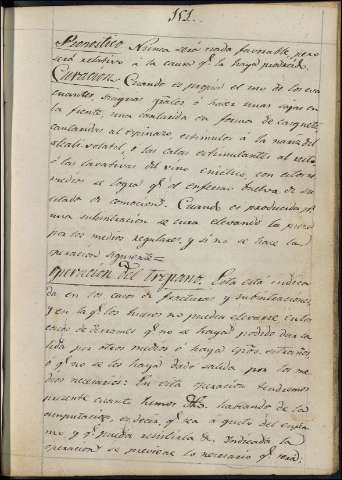 151.
Pronostico. Nunca será nada favorable, pero
será relativo á la causa q.e la haya producido.
Curacion. Cuando es propio el uso de los eva
cuantes, sangrias grâles ó hacer unas sajas en
la frente, una cantarida en forma de casquete,
cantaridas al espinazo, estimulos á la nariz del
alcali volatil, ó las calas estimulantes al recto
ó las lavativas del vino emetico, con estos re
medios se logra q.e el enfermo buelva de su
estado de conmocion. Cuando es producida p.r
una subintracion se cura elevando la pieza
por los medios regulares, y si no se hace la
operacion siguiente=
Operacion del Trepano. Esta está indica
da en los casos de fracturas y subintraciones,
y en la q.e los huesos no pueden elevarse en los
casos de derrames q.e no se haya podido dar sa
lida por otros medios ó haya cpôs. estraños,
ó q.e no se les haya dado salida por los me
dios necesarios: En esta operacion tendremos
presente cuanto hemos dho. hablando de la
amputacion, es decir q.e sea a gusto del enfer
mo y q.e pueda resistirla &. Indicada la
operacion se previene lo necesario q.e será,